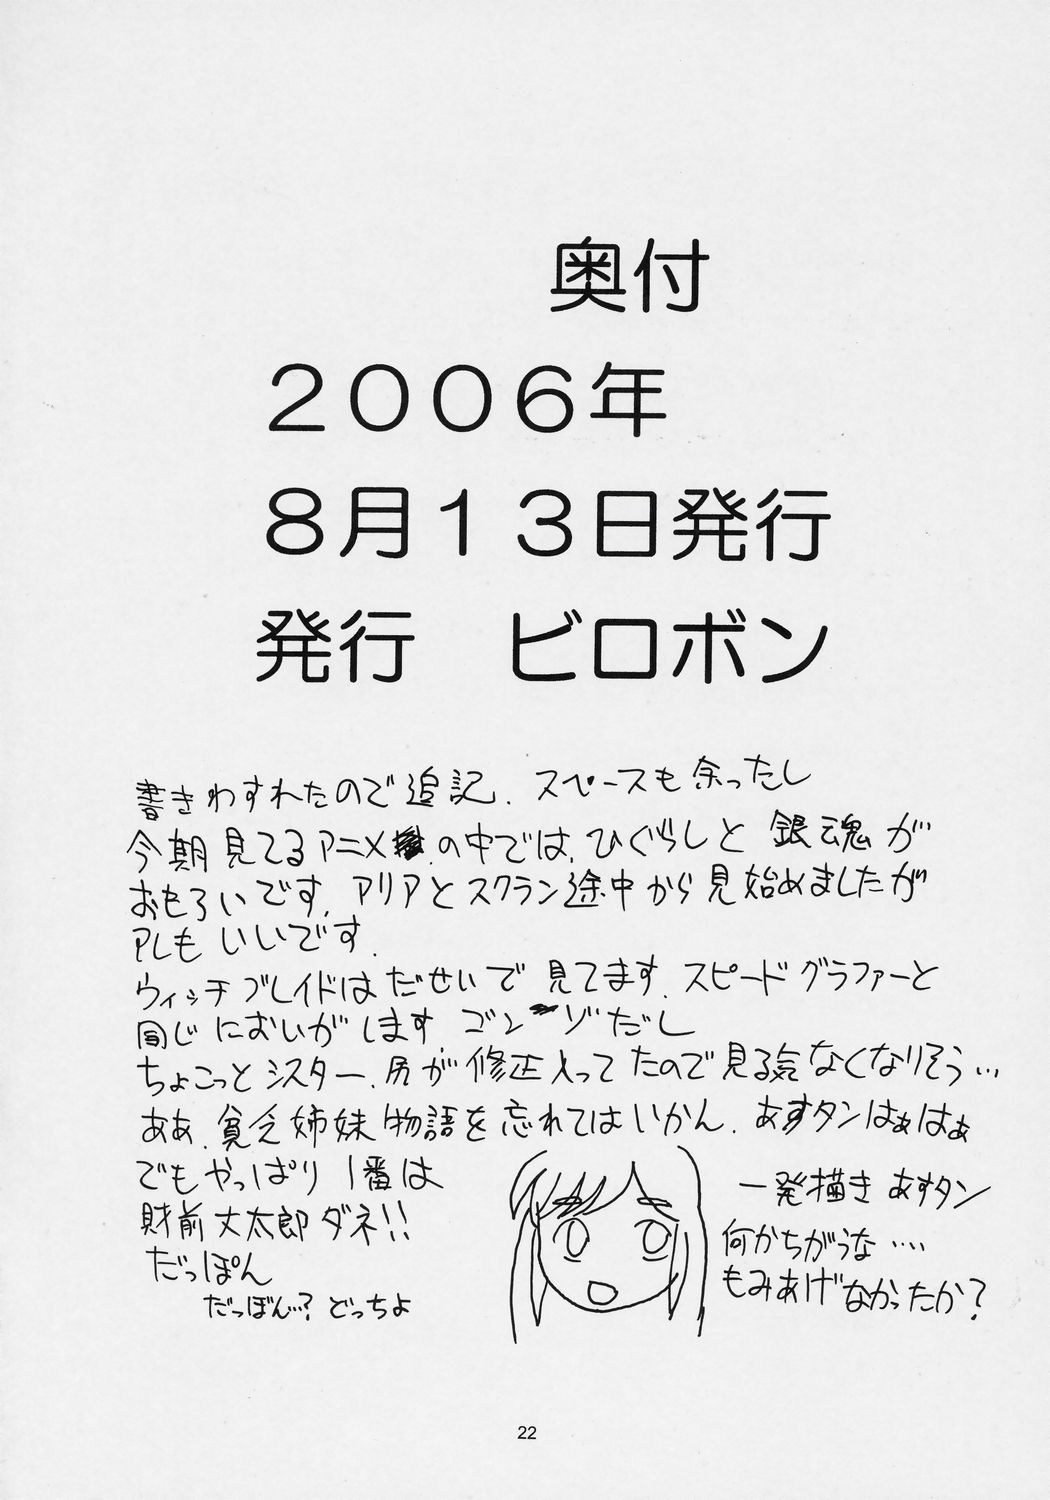 奥付
２００６年
８月１３日発行
発行　ビロボン
書きわすれたので追記、スペースも余ったし
今期見てるアニメの中では、ひぐらしと銀魂が
おもろいです。アリアとスクラン途中から見始めましたが
アレもいいです。
ウィッチブレイドはだせいで見てます。スピードグラファーと
同じにおいがします。ゴンゾだし
ちょこっとシスター、尻が修正入ってたので見る気なくなりそう…
ああ、貧乏姉妹物語を忘れてはいかん。あすタンはぁはぁ
でもやっぱり1番は
財前丈太郎ダネ!!
だっぽん
だっぼん…?どっちよ
一発描きあすタン
何かちがうな‥‥
もみあげなかったか?
22